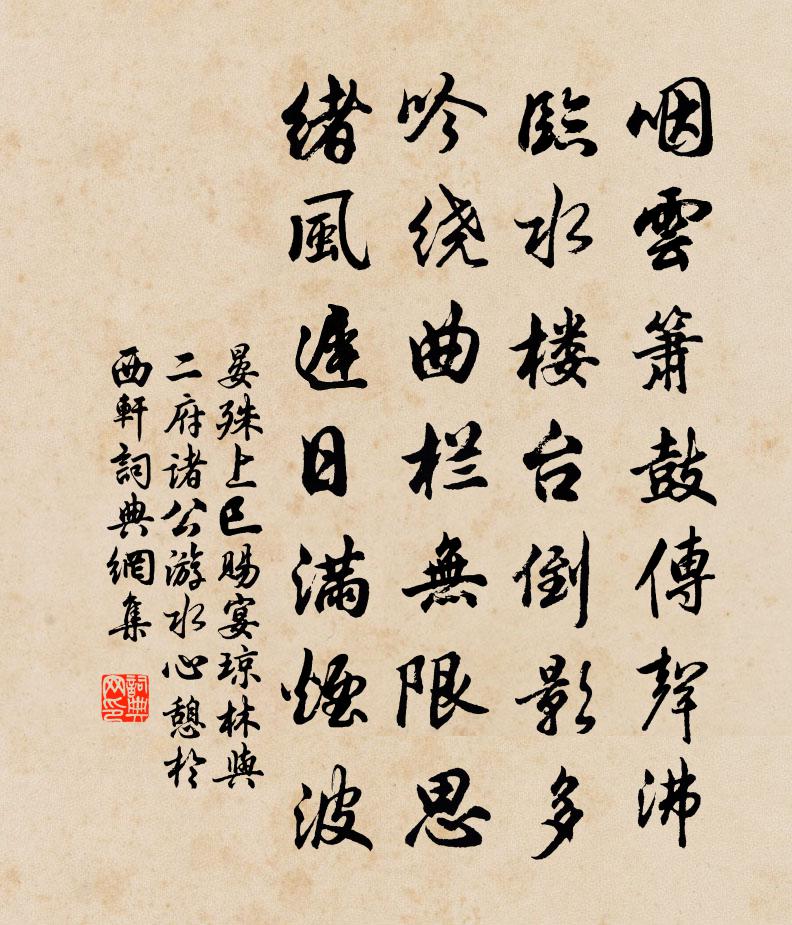 咽雲簫鼓傳聲沸
臨水楼台倒影多
吟绕曲栏無限思
绪風遲日满煙波
晏殊上巳赐宴琼林與
二府诸公游水心憩於
西軒詞典網集
詞典网印